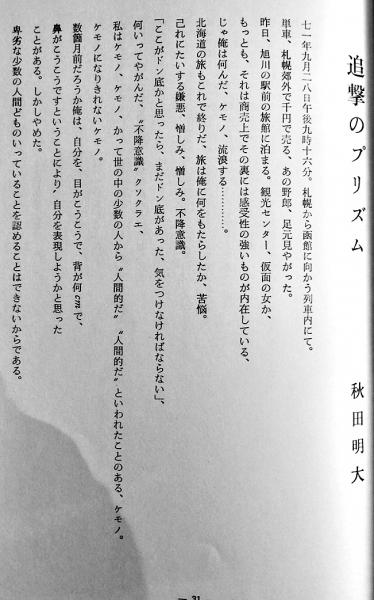 追撃のプリズム
秋田明大
七一年九月二八日午後九時十六分。札幌から函館に向かう列車内にて。
単車、札幌郊外で千円で売る、あの野郎、足元見やがった。
昨日、旭川の駅前の旅館に泊まる。観光センター、仮面の女か、
もっとも、それは商売上でその裏には感受性の強いものが内在している、
じゃ俺は何んだ、ケモノ、流浪する…………。
北海道の旅もこれで終りだ、旅は俺に何をもたらしたか、苦悩。
己れにたいする嫌悪、憎しみ、憎しみ。不降意識。
「ここがドン底かと思ったら、まだドン底があった、気をつけなければならない」、
何いってやがんだ、〝不降意識〟クソクラエ、
私はケモノ、ケモノ、かって世の中の少数の人から〝人間的だ〟〝人間的だ〟といわれたことのある、ケモノ。
ケモノになりきれないケモノ。
数箇月前だろうか俺は、自分を、目がこうこうで、背が何cmで、
鼻がこうこうですということにより、自分を表現しようかと思った
ことがある。しかしやめた。
卑劣な少数の人間どものいっていることを認めることはできないからである。
— 31